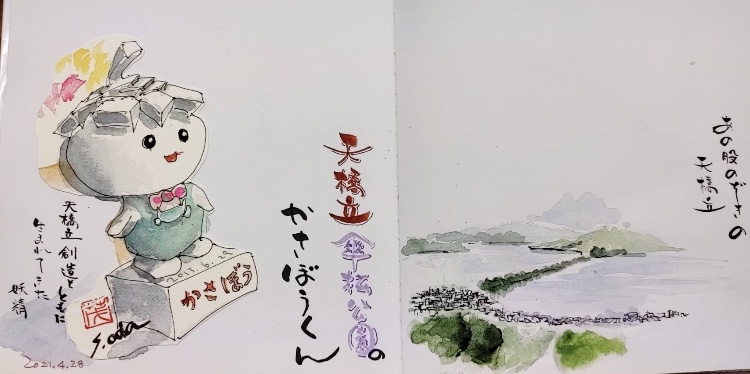 あの股のぞきの
天橋立
天橋立傘松公園の
かさぼうくん
かさぼう
天橋立創造とともに
生まれてきた
妖精
S.oda
2021.4.28